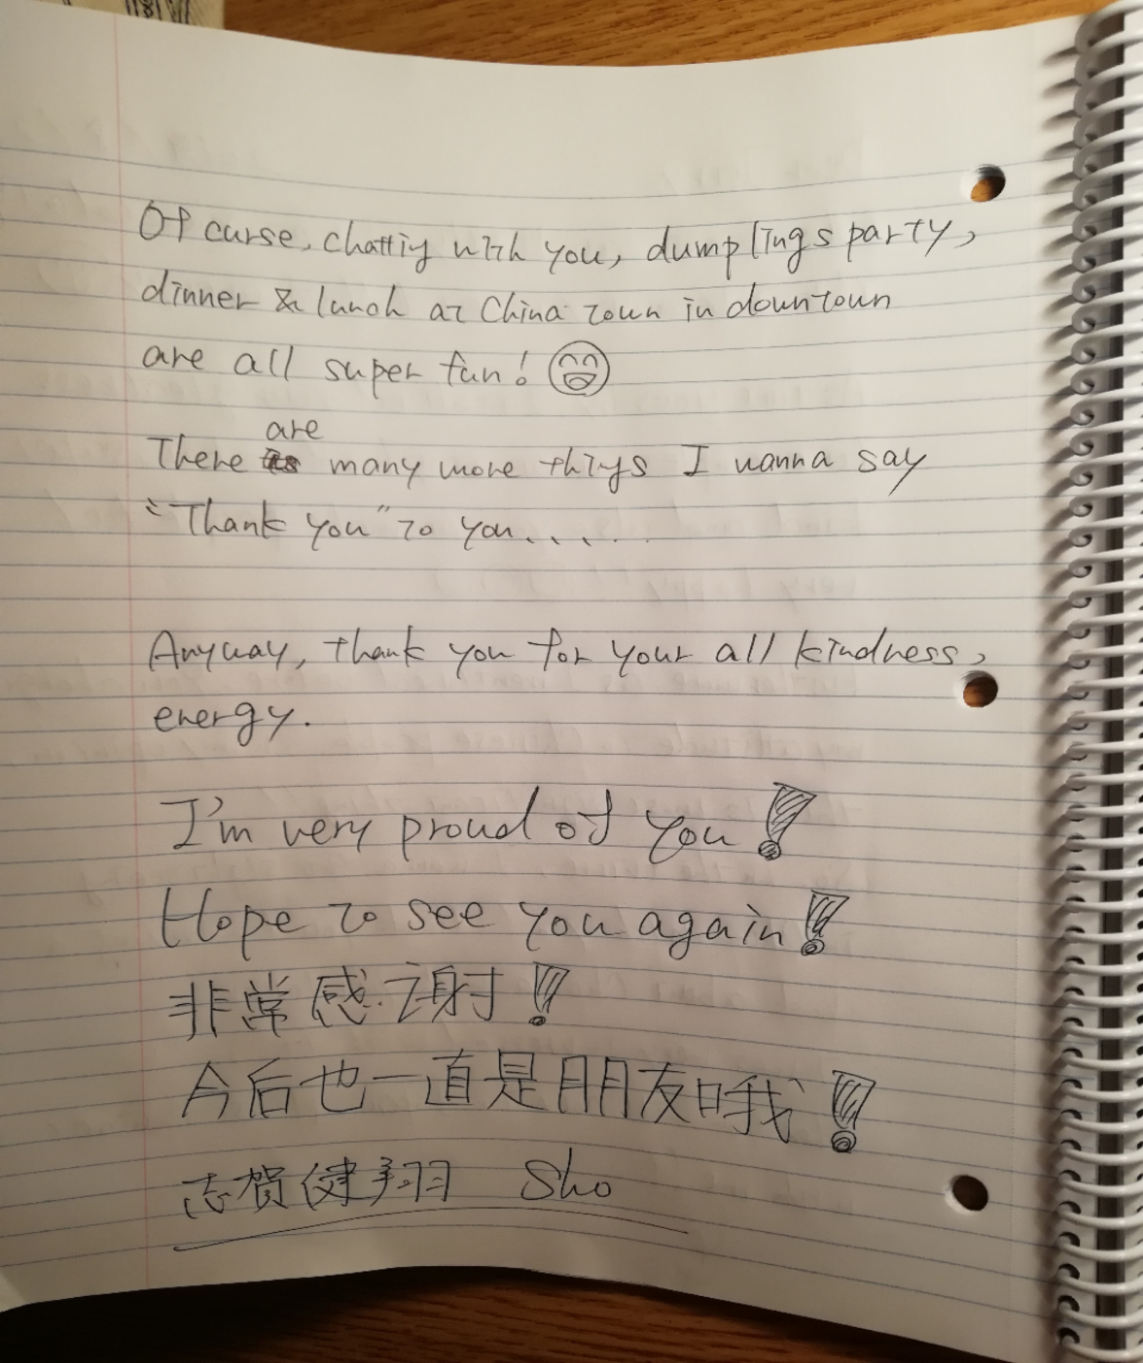 Of curse, chattiy with you, dumplings party,
dinner & lunch at China town in downtown
are all super fun!
are
There many more thiys I wanna say
"Thank you" to you.....
Anyway, thank you for your all kindness,
energy.
I'm very proud of you!
Hope to see you again!!
非常感谢!!
今后也一直是朋友哦!!
志賀健翔 Sho